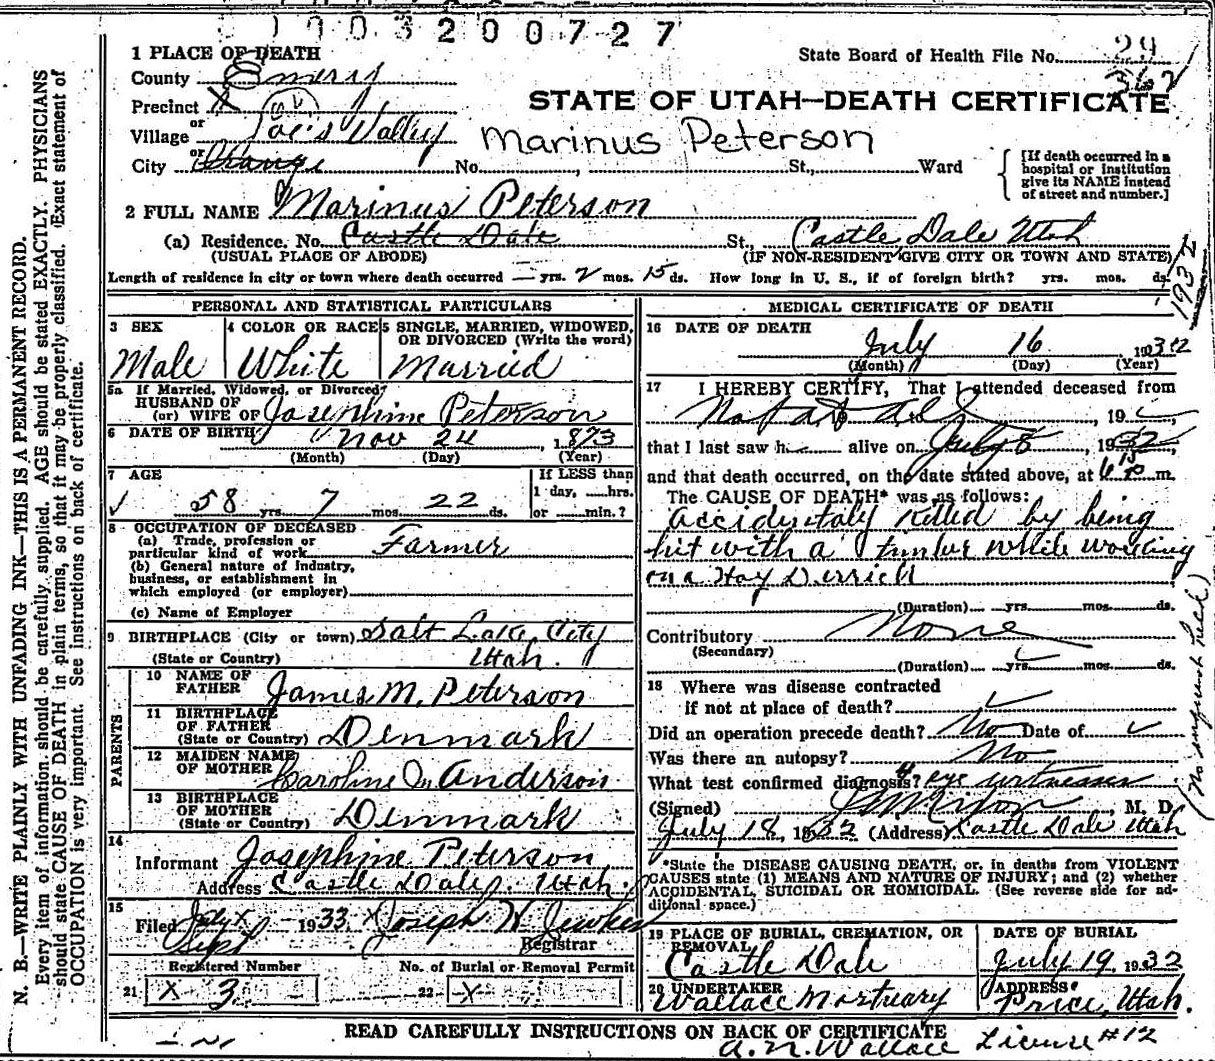 1003200727
1 PLACE OF DEATH
State Board of Health File No. 29
362
County Emery
Precinct X
STATE OF UTAH—DEATH CERTIFICATE
or
Village Joe's Valley
Marinus Peterson
or
City Orange No. , St., Ward
[If death occurred in a hospital or institution give its NAME instead of street and number.]
2 FULL NAME Marinus Peterson
(a) Residence. No. Castle Dale St., Castle Dale Utah
(USUAL PLACE OF ABODE) (IF NON-RESIDENT GIVE CITY OR TOWN AND STATE)
Length of residence in city or town where death occurred — yrs. 2 mos. 15 ds. How long in U. S., if of foreign birth? yrs. mos. ds.
1932
N. B.—WRITE PLAINLY WITH UNFADING INK—THIS IS A PERMANENT RECORD.
Every item of information should be carefully supplied. AGE should be stated EXACTLY. PHYSICIANS
should state CAUSE OF DEATH in plain terms, so that it may be properly classified. Exact statement of
OCCUPATION is very important. See instructions on back of certificate.
PERSONAL AND STATISTICAL PARTICULARS
3 SEX
Male
4 COLOR OR RACE
White
5 SINGLE, MARRIED, WIDOWED,
OR DIVORCED (Write the word)
Married
5a If Married, Widowed, or Divorced
HUSBAND OF
(or) WIFE OF Josephine Peterson
6 DATE OF BIRTH Nov 24, 1873
(Month) (Day) (Year)
7 AGE
58 yrs. 7 mos. 22 ds.
If LESS than
1 day, hrs.
or min.?
8 OCCUPATION OF DECEASED
(a) Trade, profession or
particular kind of work Farmer
(b) General nature of Industry,
business, or establishment in
which employed (or employer)
(c) Name of Employer
9 BIRTHPLACE (City or town) Salt Lake City
(State or Country) Utah.
PARENTS
10 NAME OF
FATHER James M. Peterson
11 BIRTHPLACE
OF FATHER
(State or Country) Denmark
12 MAIDEN NAME
OF MOTHER Caroline Anderson
13 BIRTHPLACE
OF MOTHER
(State or Country) Denmark
14
Informant Josephine Peterson
Address Castle Dale, Utah.
15
Filed July X 1933 X Joseph W
Sept Registrar
Registered Number No. of Burial or Removal Permit
21 X 3 22 X
MEDICAL CERTIFICATE OF DEATH
16 DATE OF DEATH
July 16 1932
(Month) (Day) (Year)
17 I HEREBY CERTIFY, That I attended deceased from
Not at all , 19
that I last saw h alive on July 8, 1932
and that death occurred, on the date stated above, at 6 m.
The CAUSE OF DEATH* was as follows:
Accidentaly killed by being
hit with a timber while working
on a Hay Derrick
(Duration) yrs. mos. ds.
Contributory None
(Secondary)
(Duration) yrs. mos. ds.
18 Where was disease contracted
if not at place of death?
Did an operation precede death? No Date of
Was there an autopsy? No
What test confirmed diagnosis? eye witnesses
(Signed) , M. D.
July 18, 1932 (Address) Castle Dale, Utah
*State the DISEASE CAUSING DEATH, or, in deaths from VIOLENT
CAUSES state (1) MEANS AND NATURE OF INJURY; and (2) whether
ACCIDENTAL, SUICIDAL OR HOMICIDAL. (See reverse side for additional space.)
19 PLACE OF BURIAL, CREMATION, OR
REMOVAL
Castle Dale
DATE OF BURIAL
July 19, 1932
20 UNDERTAKER
Wallace Mortuary
ADDRESS
Price, Utah.
READ CAREFULLY INSTRUCTIONS ON BACK OF CERTIFICATE
A. N. Wallace License #12